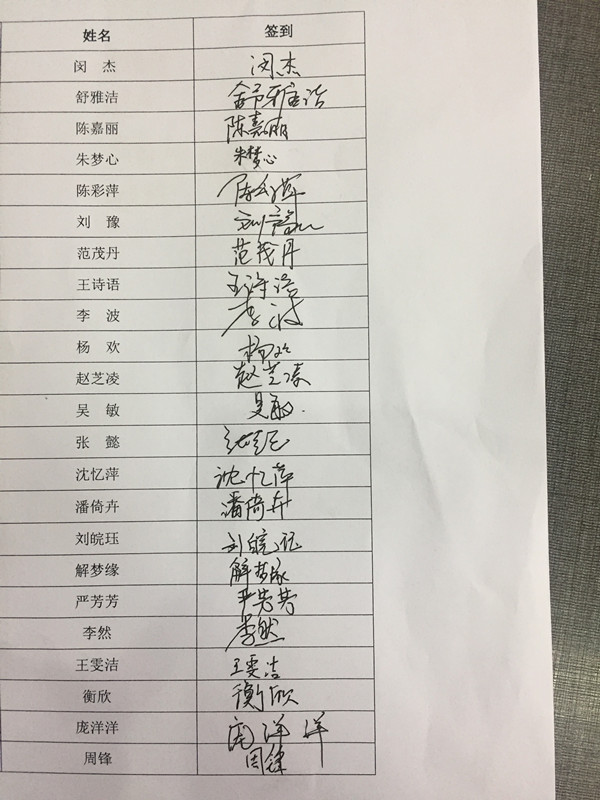 姓名 签到
闵 杰 闵杰
舒雅洁 舒雅洁
陈嘉丽 陈嘉丽
朱梦心 朱梦心
陈彩萍 陈彩萍
刘 豫 刘豫
范茂丹 范茂丹
王诗语 王诗语
李 波 李波
杨 欢 杨欢
赵芝凌 赵芝凌
吴 敏 吴敏
张 懿
沈忆萍 沈忆萍
潘倚卉 潘倚卉
刘皖珏 刘皖珏
解梦缘 解梦缘
严芳芳 严芳芳
李然 李然
王雯洁 王雯洁
衡欣 衡欣
庞洋洋 庞洋洋
周锋 周锋